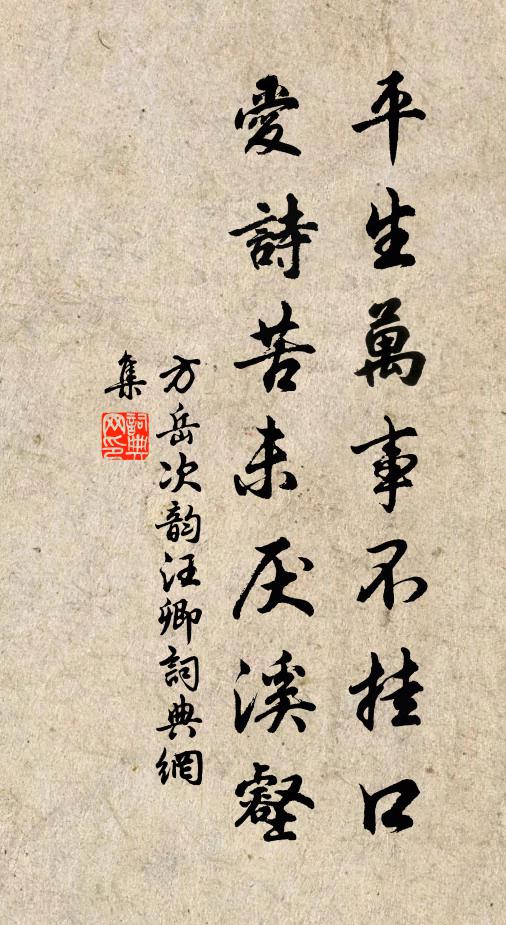 平生萬事不挂口
愛詩苦未厌溪壑
方岳次韵汪卿詞典網
集
詞典网印